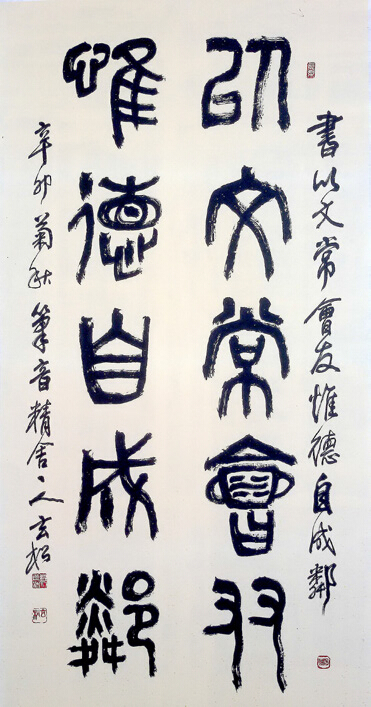 書以文常會友惟德自成鄰
以文常會友
惟德自成鄰
辛卯菊秋筆音精舍ヽ人玄